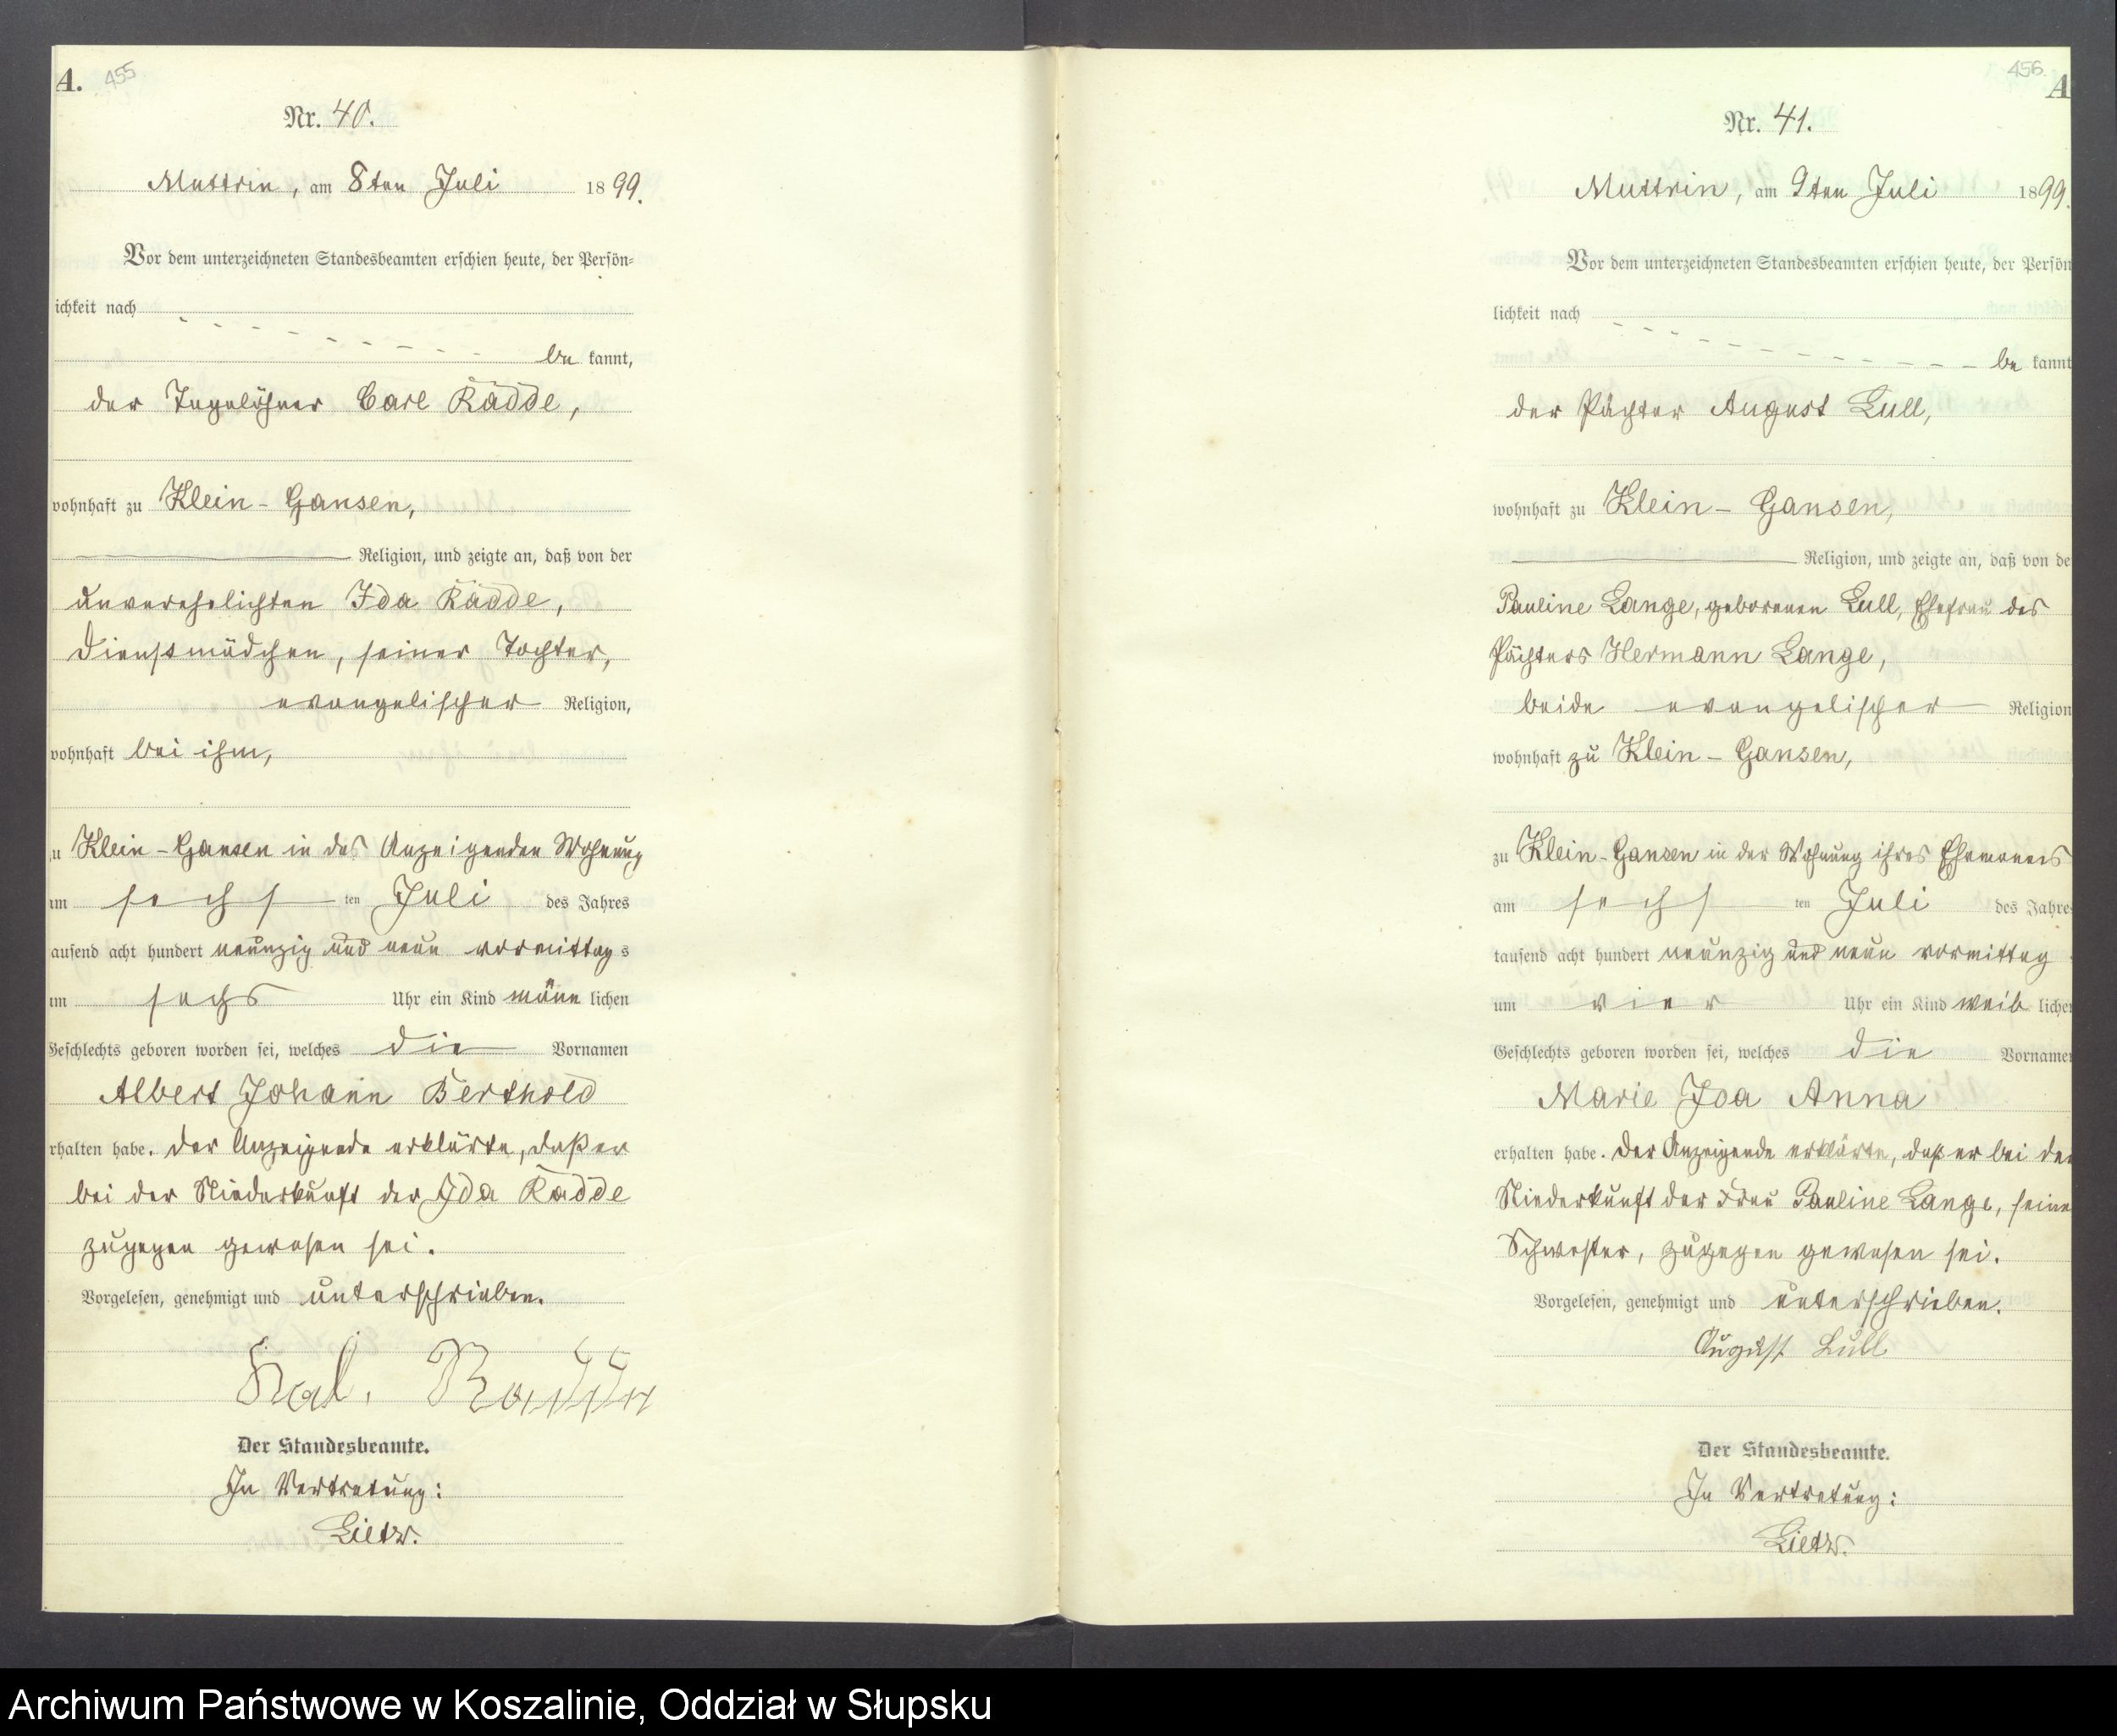 A. 455
Nr. 40.
Muttrin, am 8ten Juli 1899.
Vor dem unterzeichneten Standesbeamten erschien heute, der Persön-
ichkeit nach
be kannt,
der Tagelöhner Carl Radde,
wohnhaft zu Klein-Gansen,
Religion, und zeigte an, daß von der
unverehelichten Ida Radde,
Dienstmädchen, seiner Tochter,
evangelischer Religion,
wohnhaft bei ihm,
zu Klein-Gansen in des Anzeigenden Wohnung
am sechs ten Juli des Jahres
ausend acht hundert neunzig und neun vormittags
um sechs Uhr ein Kind männ lichen
Geschlechts geboren worden sei, welches die Vornamen
Albert Johann Berthold
rhalten habe. Der Anzeigende erklärte, daß er
bei der Niederkunft der Ida Radde
zugegen gewesen sei.
Vorgelesen, genehmigt und unterschrieben.
Karl. Radde
Der Standesbeamte.
In Vertretung:
Lietz.
456 A
Nr. 41.
Muttrin, am 9ten Juli 1899.
Vor dem unterzeichneten Standesbeamten erschien heute, der Persön
lichkeit nach
be kannt
der Pächter August Lull,
wohnhaft zu Klein-Gansen,
Religion, und zeigte an, daß von de
Pauline Lange, geborenen Lull, Ehefrau des
Pächters Hermann Lange,
beide evangelischer Religion
wohnhaft zu Klein-Gansen,
zu Klein-Gansen in der Wohnung ihres Ehemanns
am sechs ten Juli des Jahre
tausend acht hundert neunzig und neun vormittag
um vier Uhr ein Kind weib liche
Geschlechts geboren worden sei, welches die Vorname
Marie Ida Anna
erhalten habe. Der Anzeigende erklärte, daß er bei der
Niederkunft der Frau Pauline Lange, seine
Schwester, zugegen gewesen sei.
Vorgelesen, genehmigt und unterschrieben.
August Lull
Der Standesbeamte.
In Vertretung:
Lietz.
Archiwum Państwowe w Koszalinie, Oddział w Słupsku